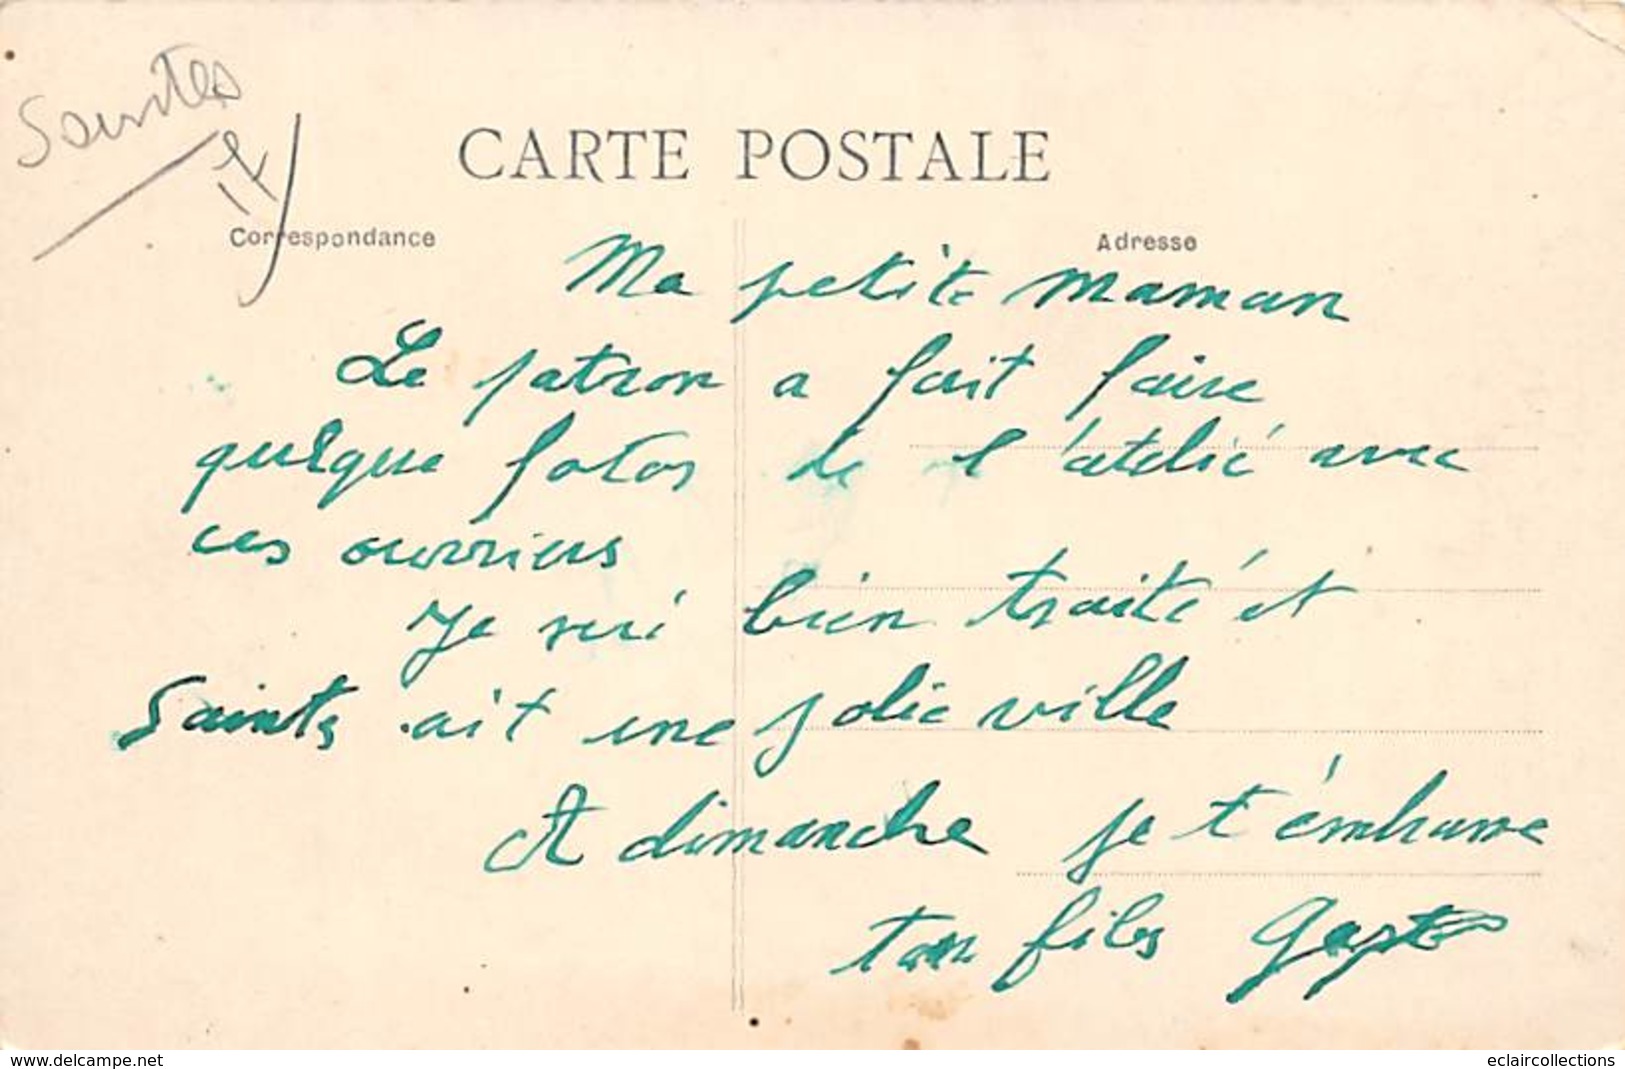 Saintes
17
CARTE POSTALE
Correspondance
Adresse
Ma petite maman
Le patron a fait faire
quelque fotos de l'atelié avec
ces ouvriers
Je sui bien traité et
Saintes ait une jolie ville
A dimanche je t'embrasse
ton fils
www.delcampe.net
eclaircollections